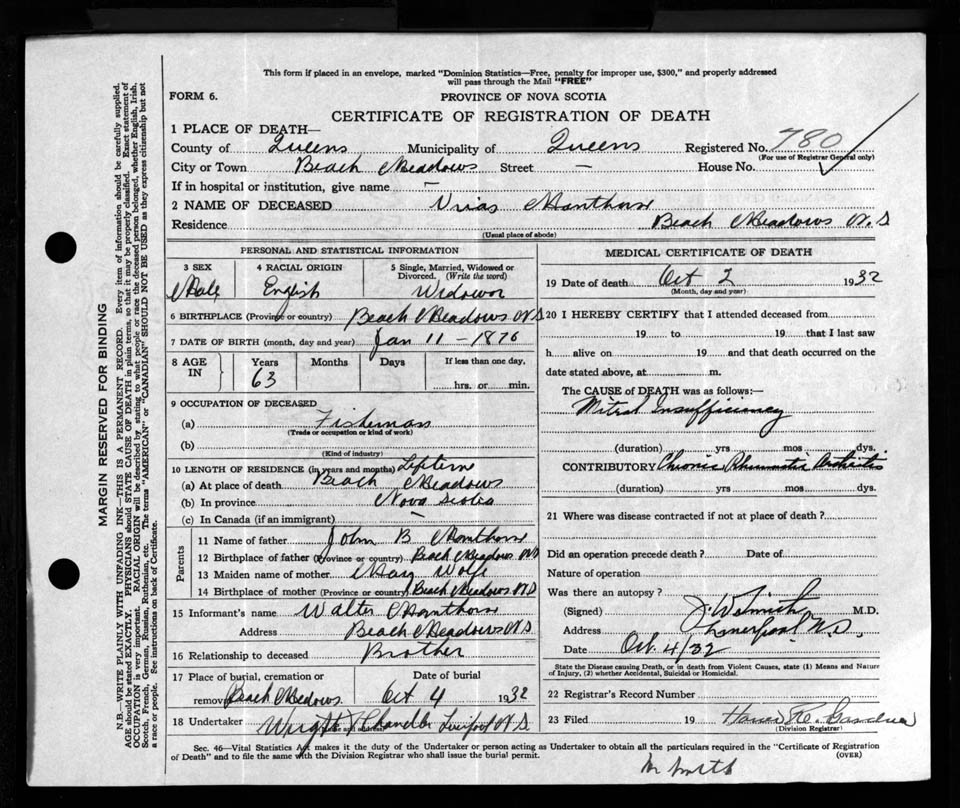 This form if placed in an envelope, marked "Dominion Statistics—Free, penalty for improper use, $300," and properly addressed
will pass through the Mail "FREE"
FORM 6.
PROVINCE OF NOVA SCOTIA
CERTIFICATE OF REGISTRATION OF DEATH
1 PLACE OF DEATH—
County of Queens Municipality of Queens Registered No. 780
(For use of Registrar General only)
City or Town Beach Meadows Street — House No.
If in hospital or institution, give name —
2 NAME OF DECEASED Urias Manthorn
Residence Beach Meadows N.S
(Usual place of abode)
PERSONAL AND STATISTICAL INFORMATION
3 SEX 4 RACIAL ORIGIN 5 Single, Married, Widowed or
Divorced. (Write the word)
Male English Widower
6 BIRTHPLACE (Province or country) Beach Meadows NS
7 DATE OF BIRTH (month, day and year) Jan 11 - 1876
8 AGE IN Years Months Days If less than one day,
63 hrs. or min.
9 OCCUPATION OF DECEASED
(a) Fisherman
(Trade or occupation or kind of work)
(b)
(Kind of industry)
10 LENGTH OF RESIDENCE (in years and months) Lifetime
(a) At place of death Beach Meadows
(b) In province Nova Scotia
(c) In Canada (if an immigrant) —
Parents
11 Name of father John B Manthorn
12 Birthplace of father (Province or country) Beach Meadows NS
13 Maiden name of mother Mary Wolfe
14 Birthplace of mother (Province or country) Beach Meadows NS
15 Informant's name Walter Manthorn
Address Beach Meadows NS
16 Relationship to deceased Brother
17 Place of burial, cremation or Date of burial
removal Beach Meadows. Oct 4 1932
18 Undertaker Wright & Chandler Liverpool NS
(Name and address)
MEDICAL CERTIFICATE OF DEATH
19 Date of death Oct 2 1932
(Month, day and year)
20 I HEREBY CERTIFY that I attended deceased from
19 to 19 that I last saw
h alive on 19 and that death occurred on the
date stated above, at m.
The CAUSE of DEATH was as follows:—
Mitral Insufficiency
(duration) yrs mos dys.
CONTRIBUTORY Chronic Rheumatic Arthritis
(duration) yrs. mos. dys.
21 Where was disease contracted if not at place of death?
Did an operation precede death? Date of
Nature of operation
Was there an autopsy?
(Signed) M.D.
Address Liverpool N.S.
Date Oct. 4/32
State the Disease causing Death, or in death from Violent Causes, state (1) Means and Nature
of Injury, (2) whether Accidental, Suicidal or Homicidal.
22 Registrar's Record Number
23 Filed 19
(Division Registrar)
Sec. 46—Vital Statistics Act makes it the duty of the Undertaker or person acting as Undertaker to obtain all the particulars required in the "Certificate of Registration
of Death" and to file the same with the Division Registrar who shall issue the burial permit.
(OVER)
M Smith
MARGIN RESERVED FOR BINDING
N.B.—WRITE PLAINLY WITH UNFADING INK—THIS IS A PERMANENT RECORD. Every item of information should be carefully supplied.
AGE should be stated EXACTLY. PHYSICIANS should STATE CAUSE OF DEATH in plain terms, so that it may be properly classified. Exact statement of
OCCUPATION is very important. RACIAL ORIGIN will be described by stating to what people or race the deceased person belonged, whether English, Irish,
Scotch, French, German, Russian, Ruthenian, etc. The terms "AMERICAN" or "CANADIAN" SHOULD NOT BE USED as they express citizenship but not
a race or people. See instructions on back of Certificate.